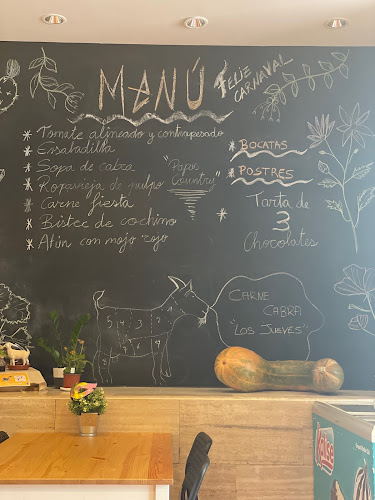 MENÚ
FELIZ
CARNAVAL
* Tomate alineado y contrapesado
* Ensaladilla
* Sopa de cabra
* Ropavieja de pulpo
* Carne fiesta
* Bistec de cochino
* Atún con mojo rojo
"Papas
Country"
* BOCATAS
* POSTRES
* Tarta de
3
Chocolates
CARNE
CABRA
"LOS JUEVES"
Kalise